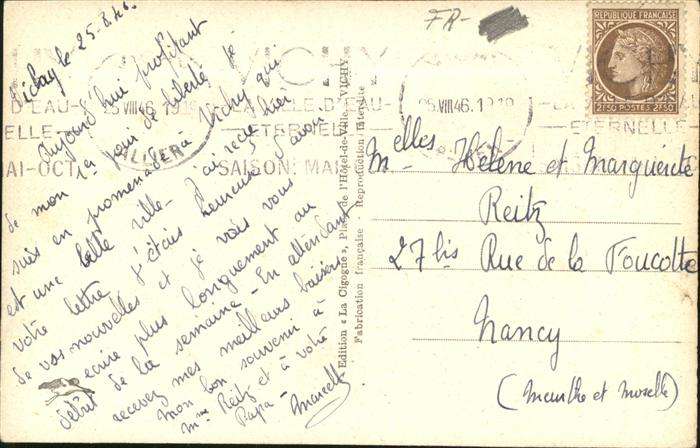 Vichy le 25-8-46.
Aujourd'hui profitant
de mon 1er jour de liberté je
suis en promenade à Vichy qui
est une belle ville - J'ai reçu hier
votre lettre j'étais heureuse d'avoir
de vos nouvelles et je vais vous
écrire plus longuement au
début de la semaine - En attendant
recevez mes meilleurs baisers
mon bon souvenir à
Mme Reitz et à votre
Papa -
Marcelle
Edition « La Cigogne », Place de l'Hôtel-de-Ville, VICHY
Fabrication française - Reproduction Interdite
FR-
REPUBLIQUE FRANÇAISE
2F50 POSTES 2F50
VICHY
D'EAU
NELLE
MAI-OCT
25 VIII 46. 19
ALLIER
VILLE D'EAU
ETERNELLE
SAISON: MAI
25 VIII 46. 19
ETERNELLE
Melles Hélène et Marguerite
Reitz
27 bis Rue de la Foucotte
Nancy
(Meurthe et Moselle)